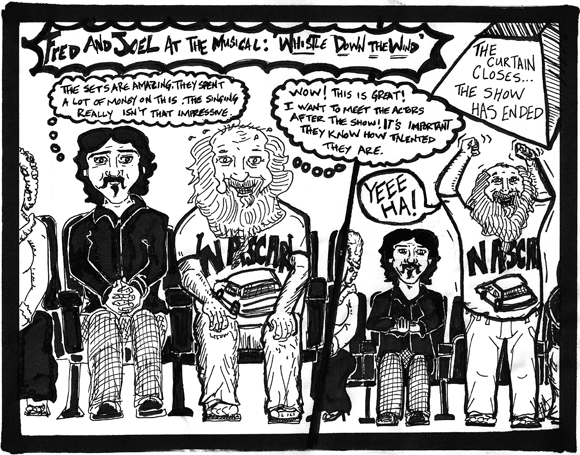 FRED AND JOEL AT THE MUSICAL: "WHISTLE DOWN THE WIND"
THE SETS ARE AMAZING. THEY SPENT
A LOT OF MONEY ON THIS. THE SINGING
REALLY ISN'T THAT IMPRESSIVE.
WOW! THIS IS GREAT!
I WANT TO MEET THE ACTORS
AFTER THE SHOW! IT'S IMPORTANT
THEY KNOW HOW TALENTED
THEY ARE.
NASCAR
THE
CURTAIN
CLOSES...
THE SHOW
HAS ENDED
YEEE
HA!
NASCAR